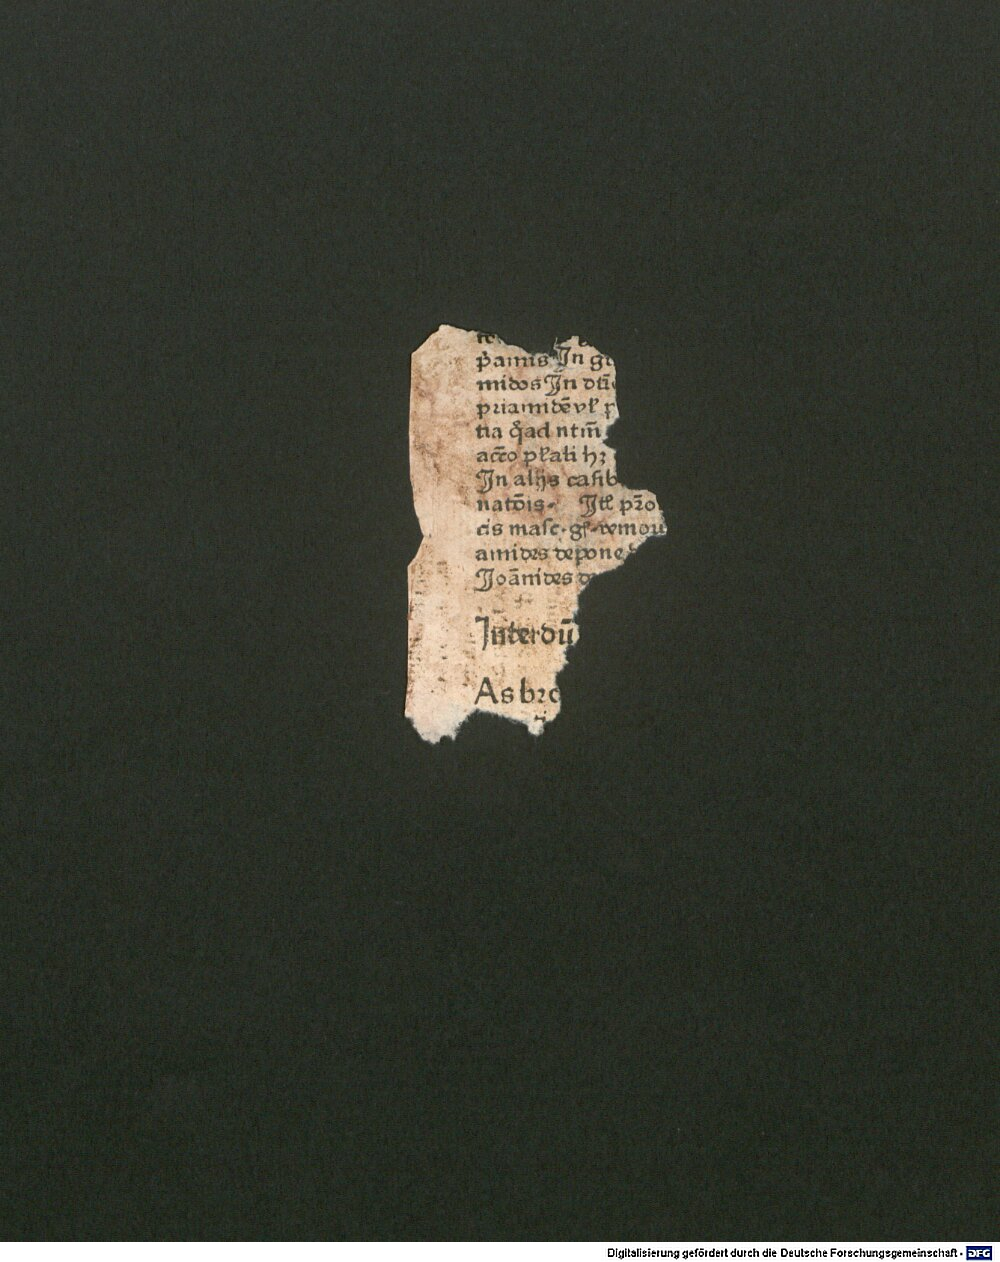 p̄amis Jn gi
midos Jn dtı̄o
priamidē vľ p
tia q̄ad ntm̄
acc̄o pľati hꝫ
Jn alijs casib
natōis. Jtē pꝛ̄o
cis masc. gř remou
amides depone
Joānides d
Jnterdū
As bꝛe
Digitalisierung gefördert durch die Deutsche Forschungsgemeinschaft - DFG